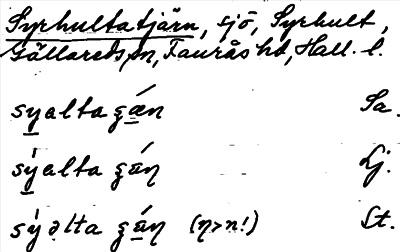 Syrhultatjärn, sjö, Syrhult,
Gällareds sn, Faurås hd, Hall. l.
syalta ʒǽn Sa.
sýalta ʒáŋ Lj.
sýəlta ʒáŋ (ŋ>n!) St.